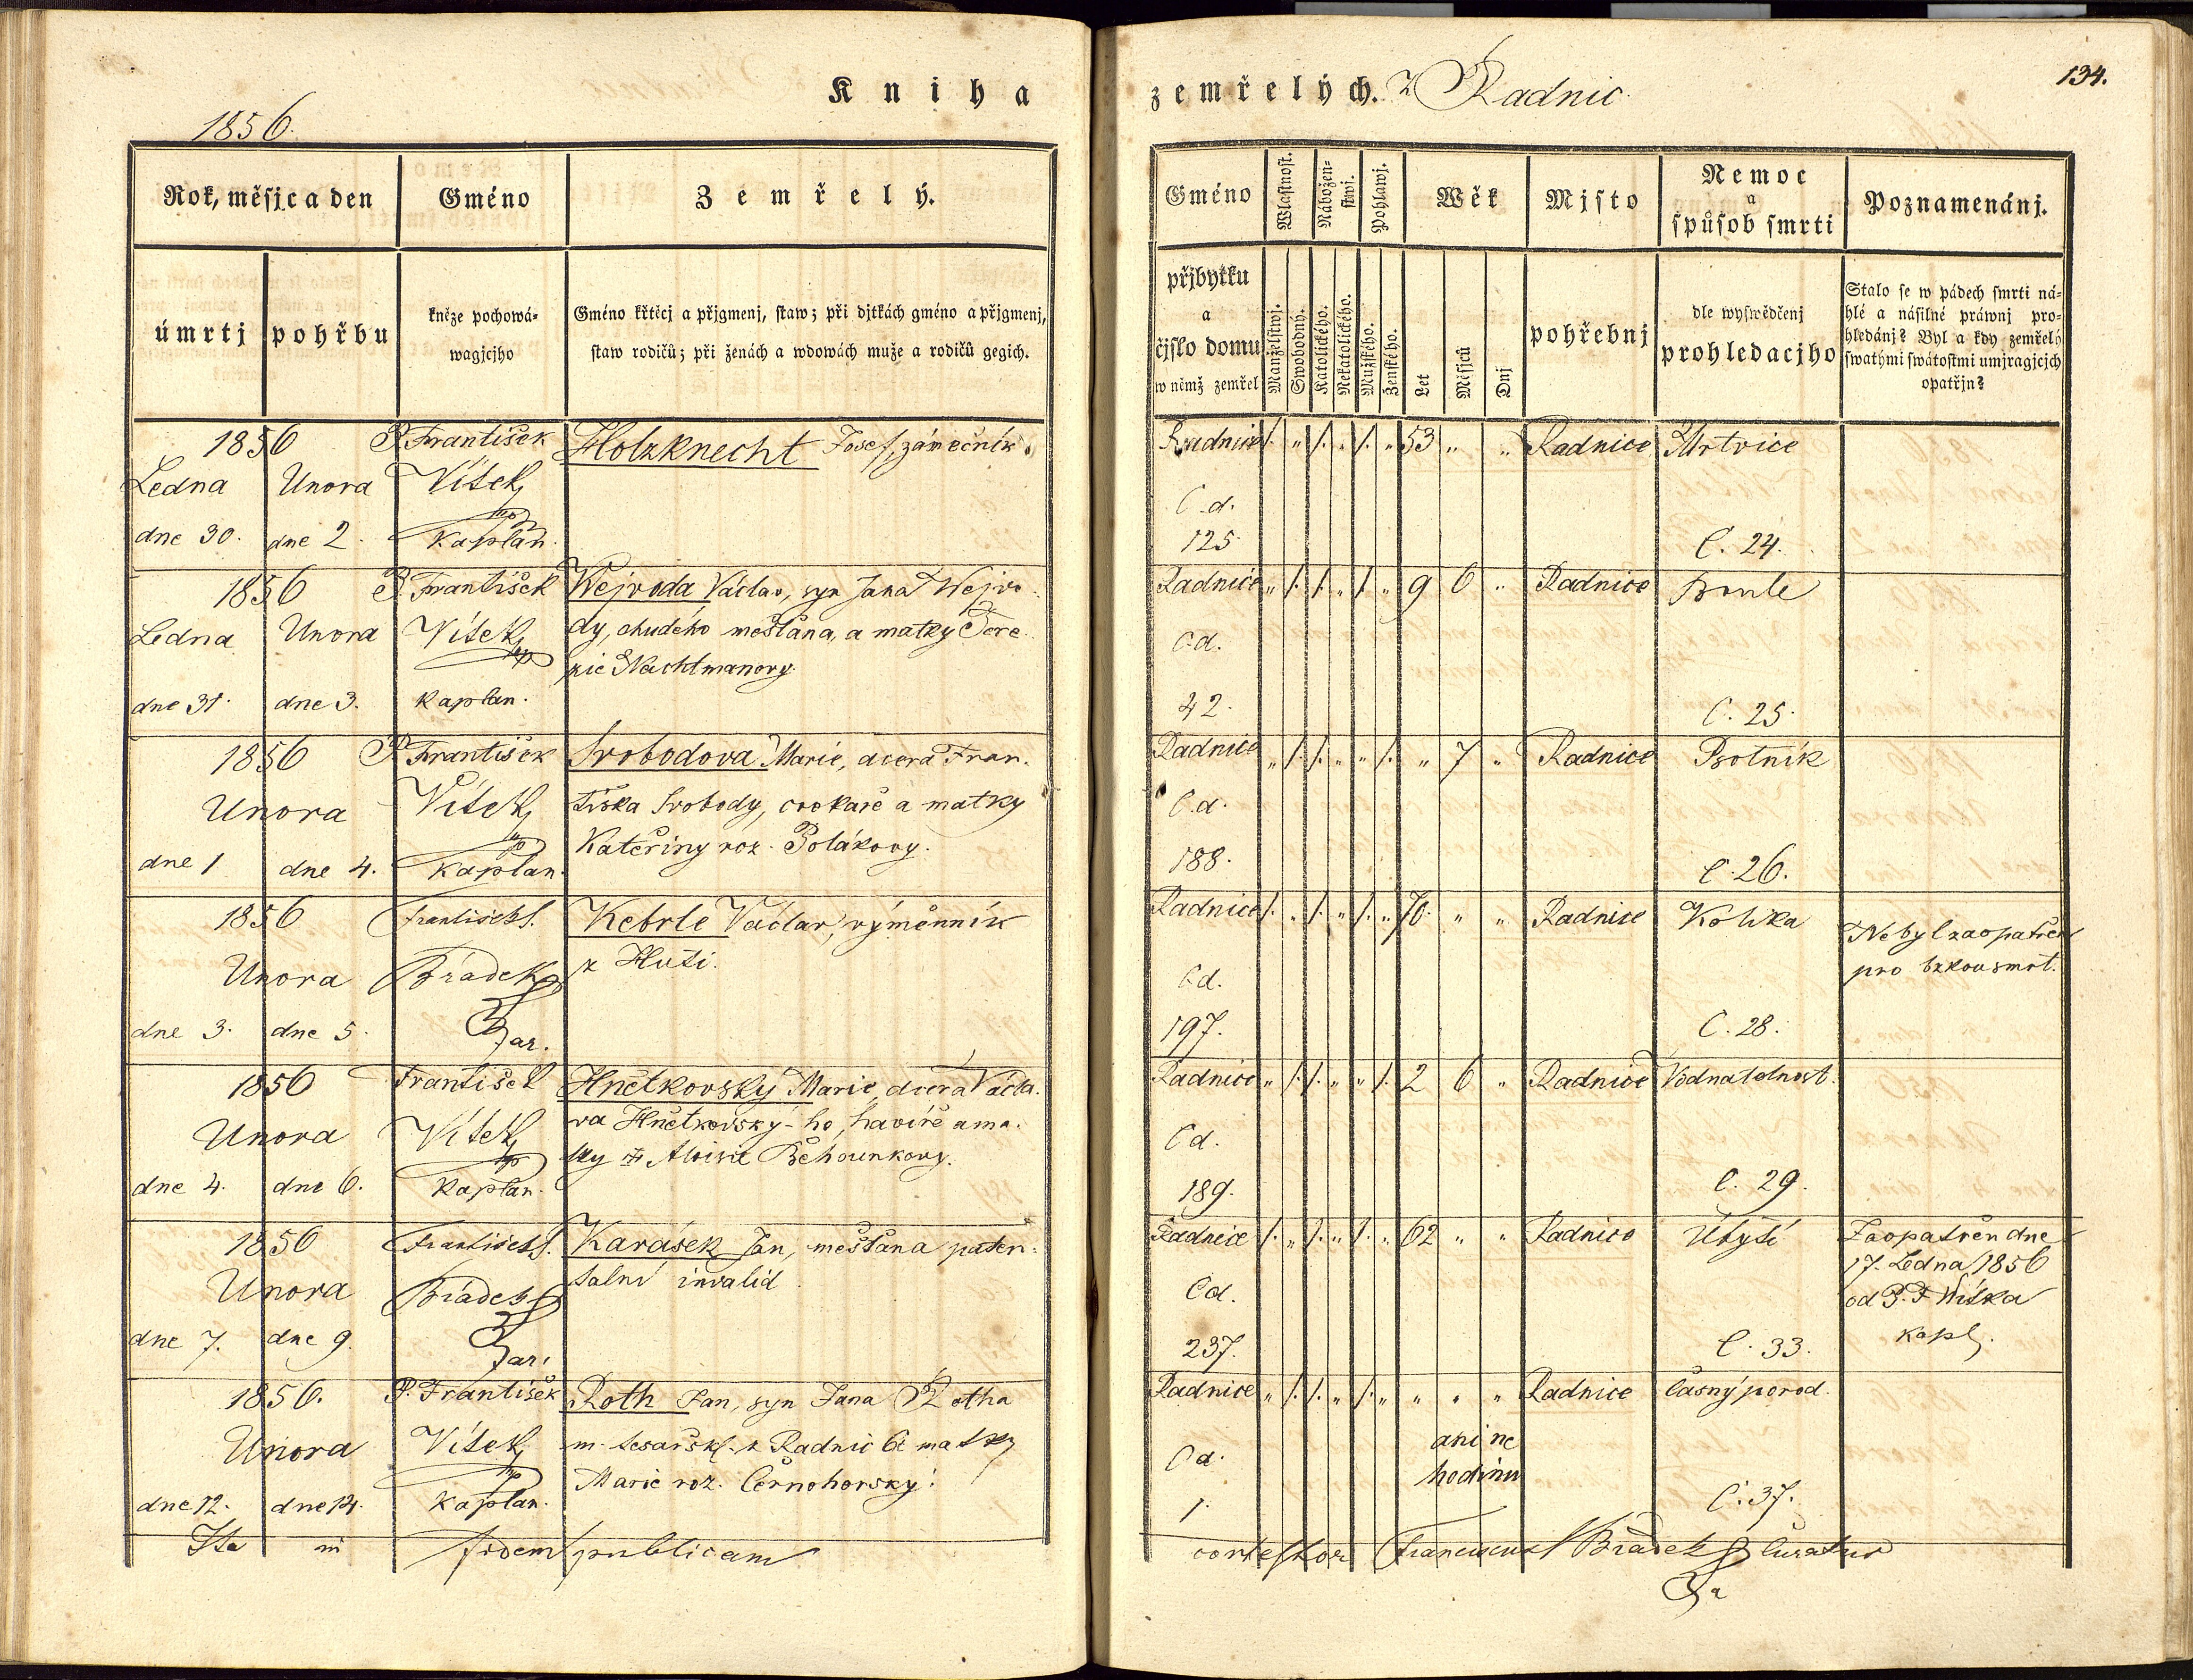 Kniha
1856.
Rok, měsjc a den
Gméno
Zemřelý.
úmrtj
pohřbu
kněze pochowá=
wagjcjho
Gméno křtěcj a přjgmenj, staw; při djtkách gméno a přjgmenj,
staw rodičů; při ženách a wdowách muže a rodičů gegich.
1856
Ledna Unora
dne 30. dne 2.
P. František
Vítek
mp
Kaplan.
Holzknecht Josef, zámečník.
1856
Ledna Unora
dne 31. dne 3.
P. František
Vítek
mp
Kaplan.
Wejvoda Václav, syn Jana Wejvo
dy, chudého mešťana, a matky Tere
zie Nachtmanovy.
1856
Unora
dne 1 dne 4.
P. František
Vítek
mp
Kaplan.
Svobodova Marie, dcera Fran.
tiška Svobody, cvokaře a matky
Kateřiny roz. Polákovy.
1856
Unora
dne 3. dne 5.
František S.
Brádek
Far.
Kebrle Václav, výměnník
z Huti.
1856
Unora
dne 4. dne 6.
František
Vítek
mp
Kaplan.
Hnětkovský Marie, dcera Václa.
va Hnětkovský-ho, havíře a ma.
tky Aloisie Běhounkovy.
1856
Unora
dne 7. dne 9.
František S.
Brádek
Far.
Karásek Jan, mešťana paten=
talní invalid.
1856.
Unora
dne 12. dne 14.
P. František
Vítek
mp
Kaplan.
Roth Jan, syn Jana Rotha
m. tesařsk. z Radnic & matky
Marie roz. Černohorský.
Ita in fidem publicam
zemřelých. z Radnic
134.
Gméno
Wlastnost.
Nábožen=
stwj.
Pohlawj.
Wěk
Mjsto
Nemoc
a
spůsob smrti
Poznamenánj.
přjbytku
a
čjslo domu
w němž zemřel
Manželstwj.
Swobodný.
Katolického.
Nekatolického.
Mužského.
Ženského.
Let
Měsjců
Dnj
pohřebnj
dle wyswědčenj
prohledacjho
Stalo se w pádech smrti ná=
hlé a násilné práwnj pro=
hledánj? Byl a kdy zemřelý
swatými swátostmi umjragjcjch
opatřjn?
Radnice /. " /. " /. " 53 " " Radnice Mrtvice
C. d.
125. C. 24.
Radnice " /. /. " /. " 9 6 " Radnice
C. d.
42. C. 25.
Radnice " /. /. " " /. " 7 " Radnice Psotník
C. d.
188. C. 26.
Radnice /. " /. " /. " 70. " " Radnice Kolika
Nebyl zaopatřen
pro smrt.
C. d.
197. C. 28.
Radnice " /. /. " " /. 2 6 " Radnice Vodnatelnost.
C. d.
189. C. 29.
Radnice /. " /. " /. " 62 " " Radnice Úbytě
Zaopatřen dne
17. Ledna 1856
od P. F. Wítka
kapl.
C. d.
237. C. 33.
Radnice " /. /. " /. " " " " Radnice časný porod.
ani ne
hodinu
C. d.
1. C. 37.
contestor Franciscus S. Brádek Curatus